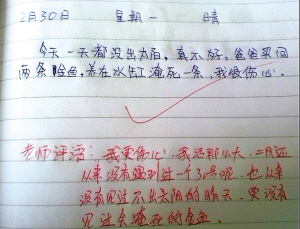 2月30日 星期一 晴
今天一天都没出太阳,真不好,爸爸买回
两条金鱼,养在水缸淹死一条,我很伤心。
老师评语:我更伤心,我活那么大,二月还
从来没有遇到过一个30号呢,也从来
没有见过不出太阳的晴天,更没有
见过会淹死的金鱼